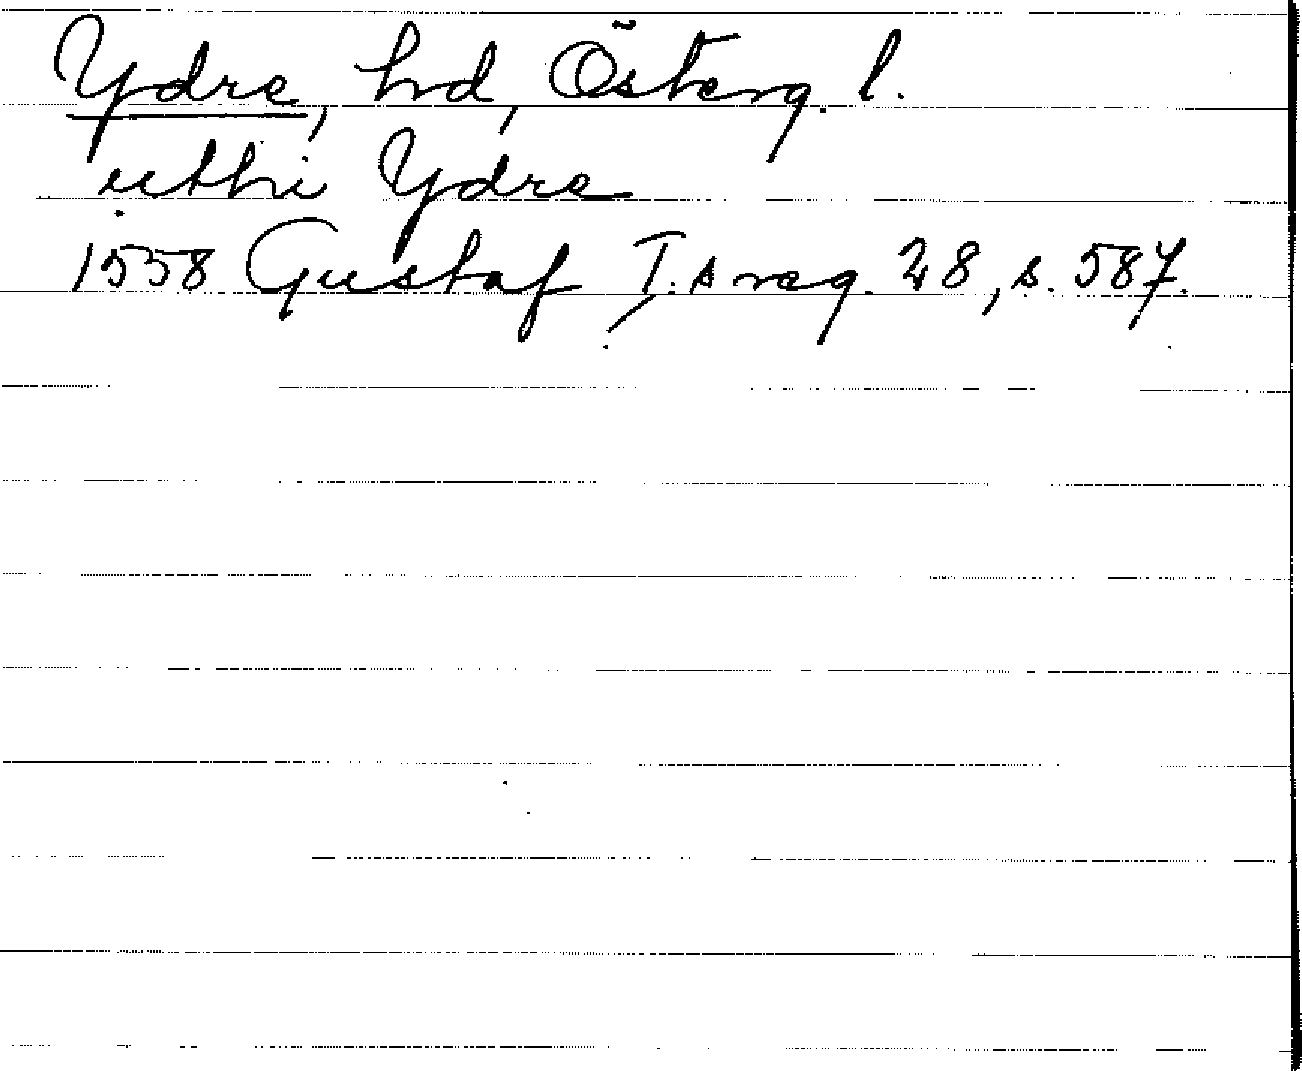 Ydre, hd, Österg. l.
uthi Ydre
1558 Gustaf I:s reg. 28, s. 587.